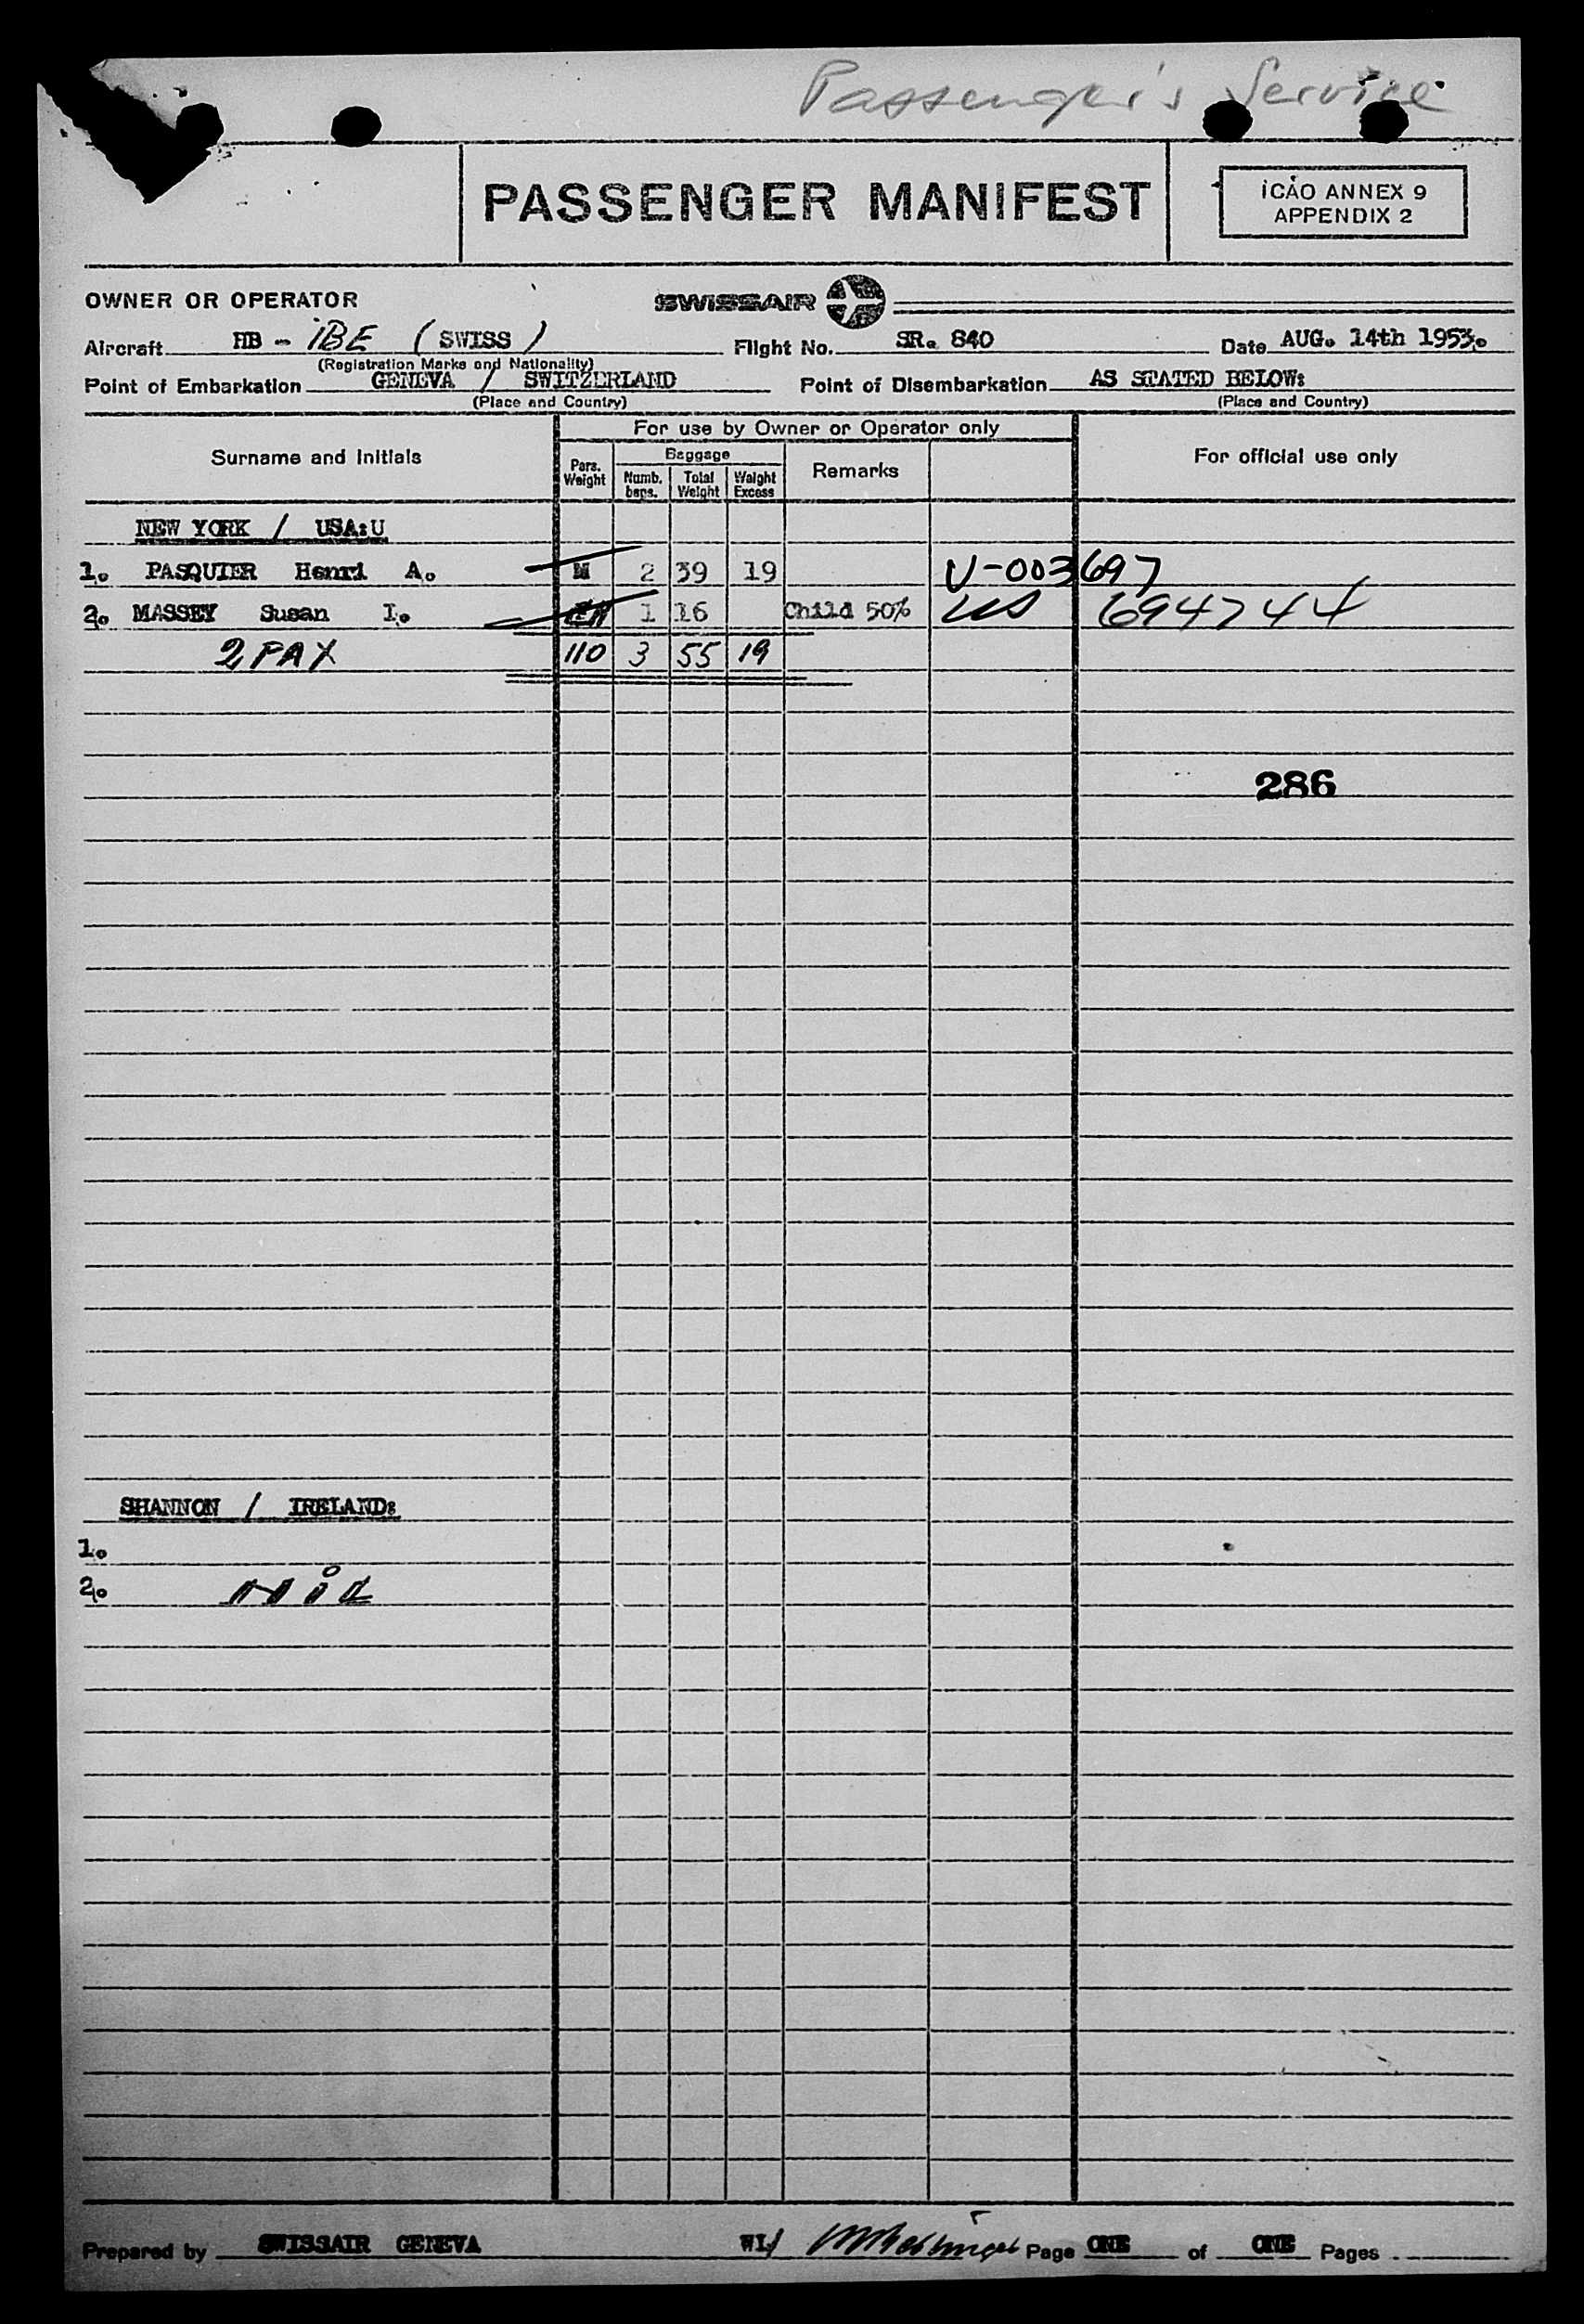 Passenger's Service
PASSENGER MANIFEST
ICAO ANNEX 9
APPENDIX 2
OWNER OR OPERATOR SWISSAIR
Aircraft HB - IBE ( SWISS ) Flight No. SR. 840 Date AUG. 14th 1953.
(Registration Marks and Nationality)
Point of Embarkation GENEVA / SWITZERLAND Point of Disembarkation AS STATED BELOW:
(Place and Country) (Place and Country)
For use by Owner or Operator only
Surname and Initials Pers. Weight Baggage Numb. bags. Total Weight Weight Excess Remarks For official use only
NEW YORK / USA:U
1. PASQUIER Henri A. M 2 39 19 V-003697
2. MASSEY Susan I. 1 16 Child 50% US 694744
2 PAX 110 3 55 19
286
SHANNON / IRELAND:
1.
2. NiL
Prepared by SWISSAIR GENEVA WL/ Page ONE of ONE Pages